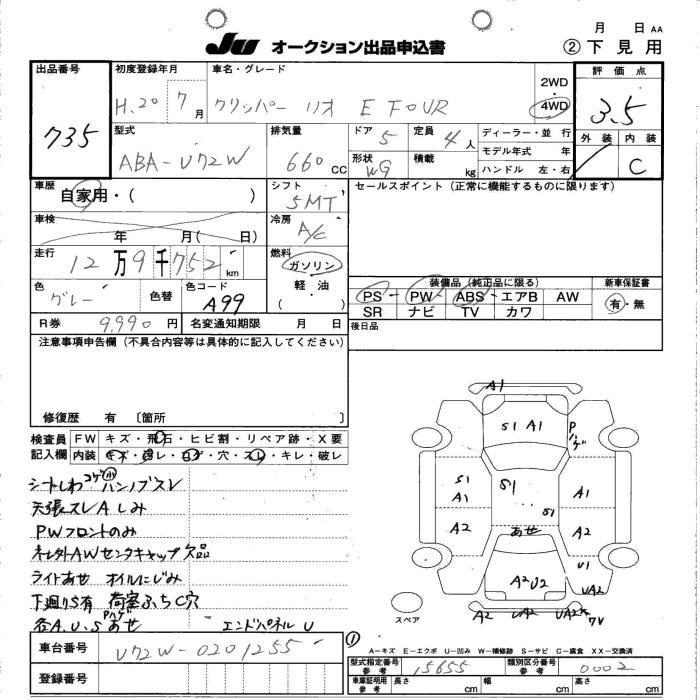 JU オークション出品申込書
月 日 AA
② 下見用
出品番号
735
初度登録年月
H.20 7月
車名・グレード
クリッパー リオ E FOUR
2WD
4WD
評価点
3.5
外装 内装
C
型式
ABA-U72W
排気量
660 cc
ドア 5
形状 WG
定員 4人
積載 kg
ディーラー・並 行
モデル年式 年
ハンドル 左・右
車歴
自家用・( )
シフト
5MT
セールスポイント (正常に機能するものに限ります)
車検
年 月( 日)
冷房
A/C
走行
12万9千752km
燃料
ガソリン
軽・油
( )
色
グレー
色替
色コード
A99
装備品 (純正品に限る)
PS-PW-ABS-エアB AW
SR ナビ TV カワ
新車保証書
有・無
R券 9,990円
名変通知期限 月 日
後日品
注意事項申告欄 (不具合内容等は具体的に記入してください)
修復歴 有 〔箇所 〕
検査員記入欄
FW キズ・飛石・ヒビ割・リペア跡・X要
内装 キズ・汚レ・コゲ・穴・スレ・キレ・破レ
シートしわ コゲ小 ハンノブスレ
天張スレAしみ
PWフロントのみ
ネレ外AWセンタキャップ欠品
ライトあせ オイルにじみ
下廻りS有 荷室ふちC穴
各A.U.S Pハゲ あせ エンドパネルU
車台番号
U72W-0201255
登録番号
A1
S1 A1
Pハゲ
S1
A1
S1
S1
A1
A2
あせ
A2
U1
A2U2
UA2
A2 UA2 UA2
スペア
①
A-キズ E-エクボ U-凹み W-補修跡 S-サビ C-腐食 XX-交換済
型式指定番号 参考
15655
類別区分番号 参考
0002
車庫証明用 参考
長さ cm
幅 cm
高さ cm